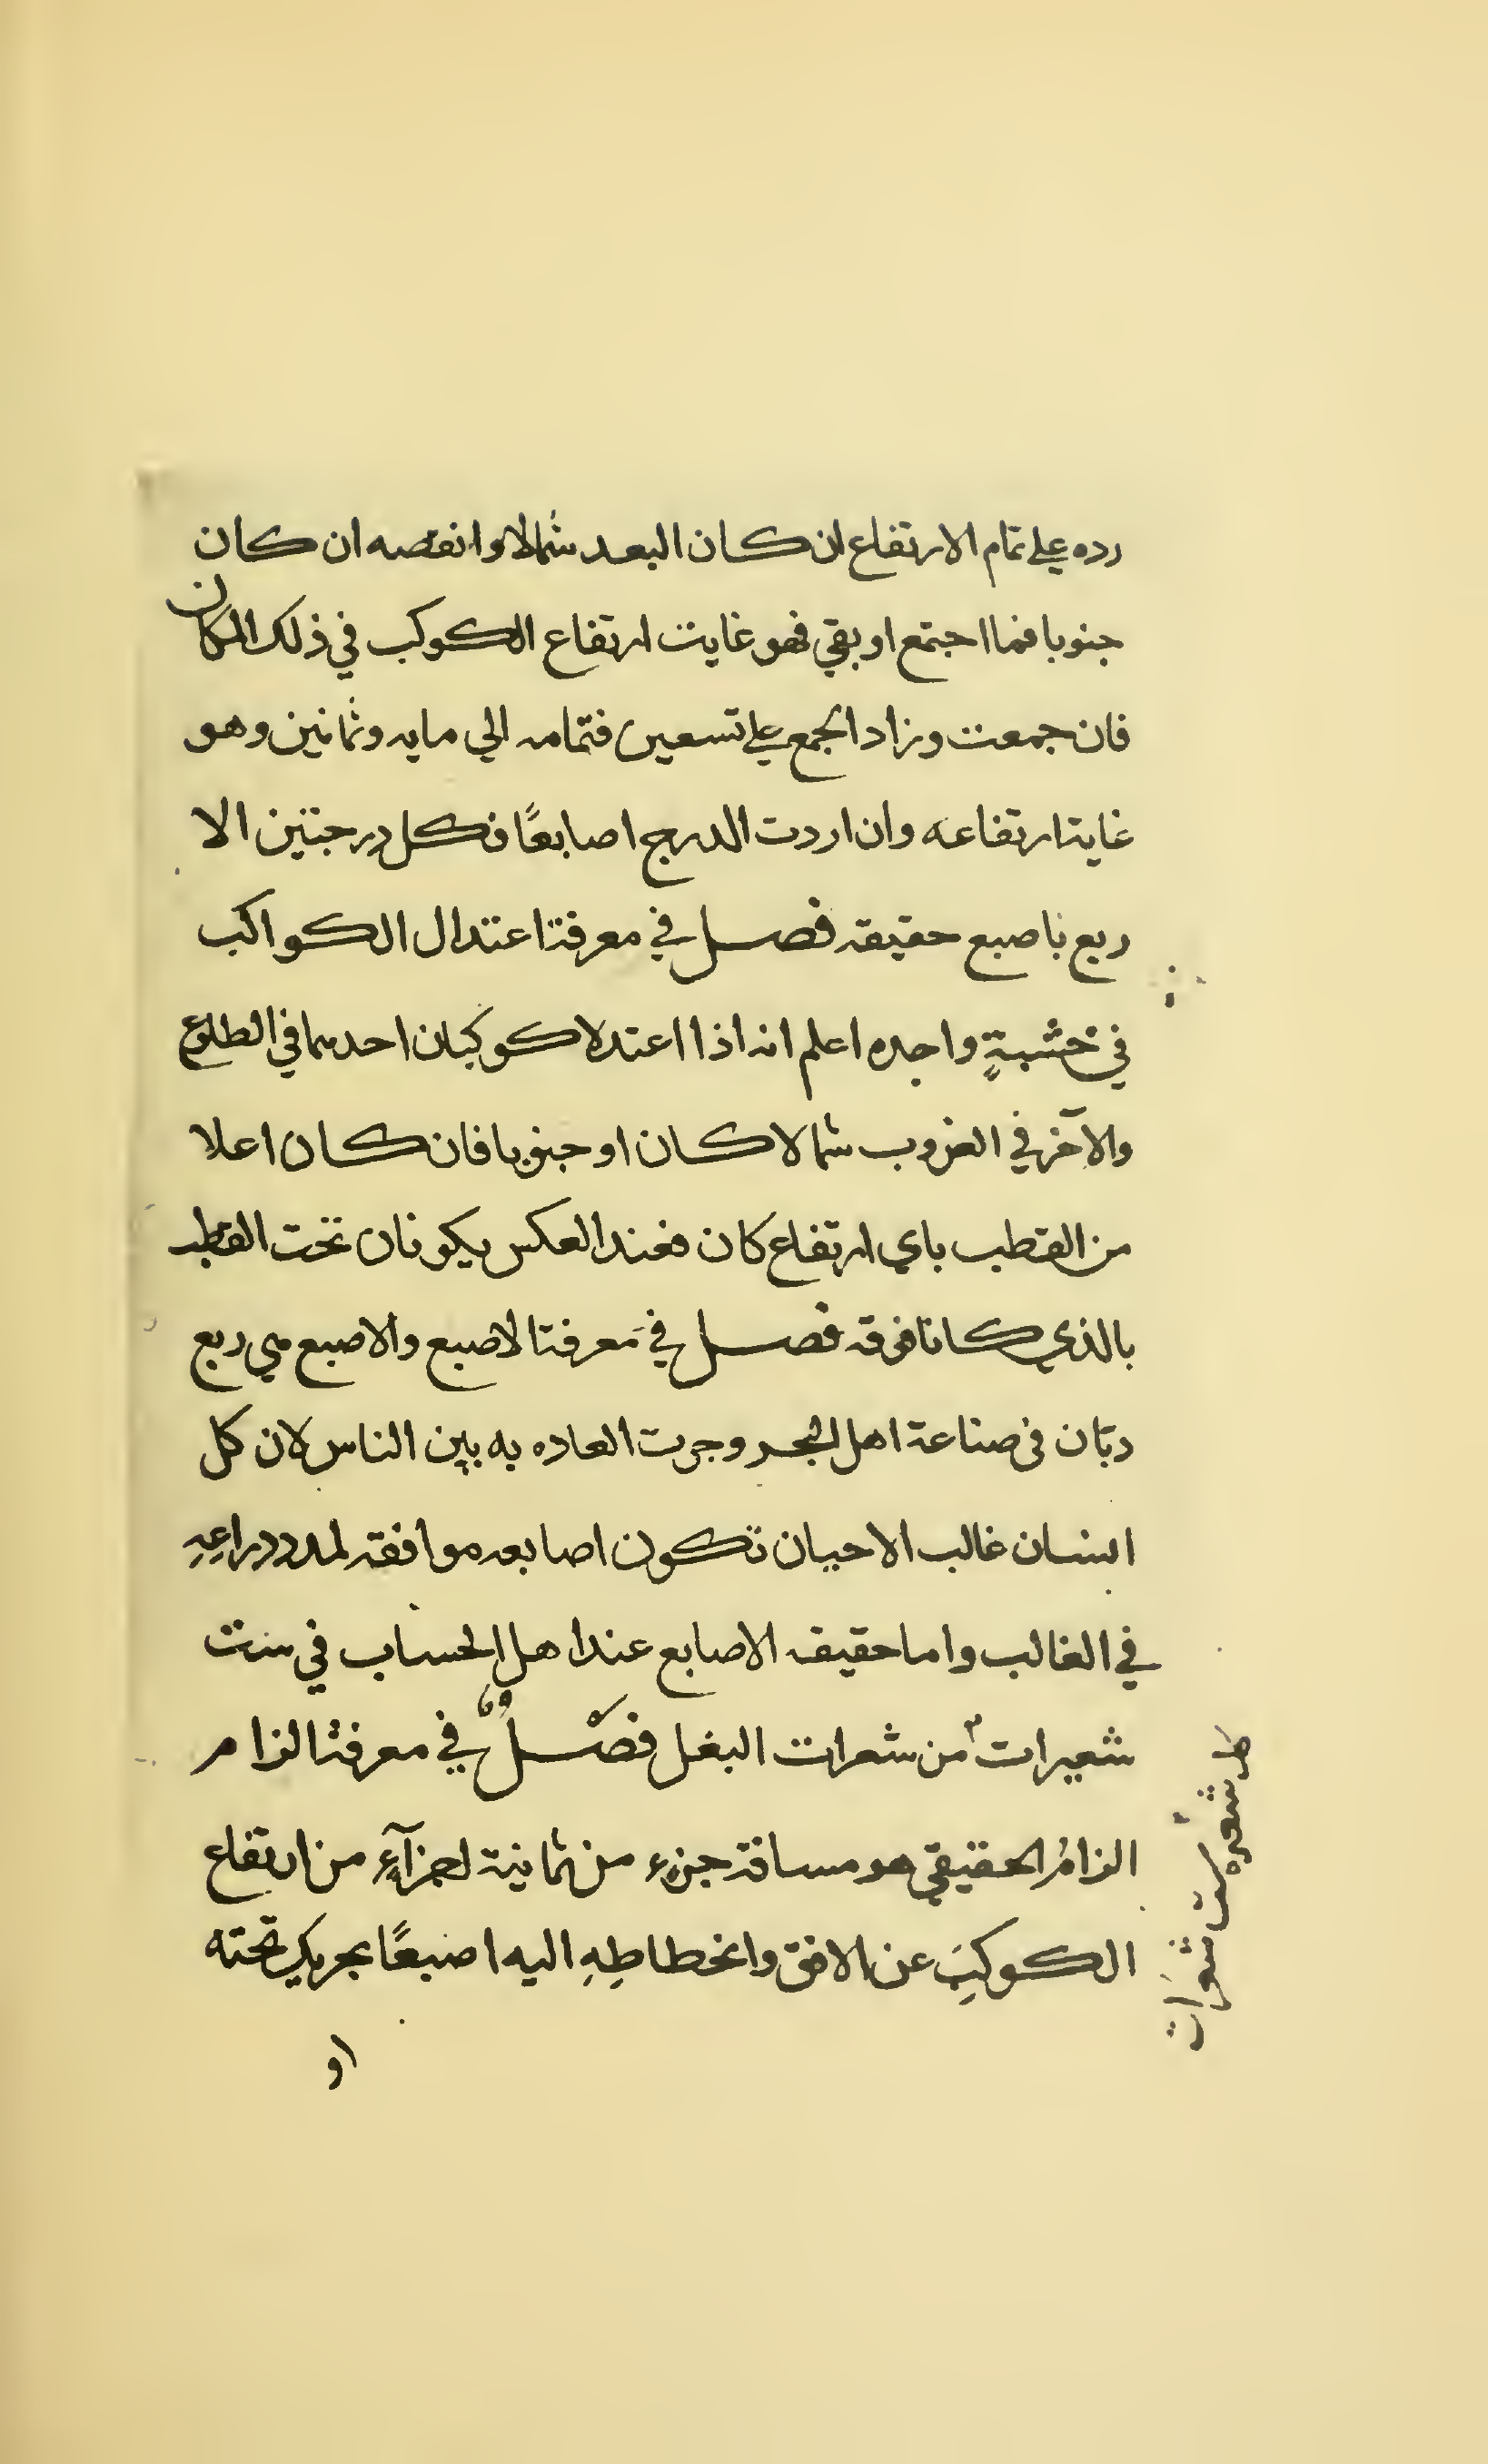 رده علي تمام الارتفاع ان كان البعد شمالا وانقصه ان كان
جنوبا فما اجتمع او بقي فهو غايت ارتفاع الكوكب في ذلك المكان
فان جمعت وزاد الجمع علي تسعين فتمامه الي مايه وثمانين وهو
غاية ارتفاعه وان اردت الدرج اصابعًا فكل درجتين الا
ربع باصبع حقيقه فصل في معرفة اعتدال الكواكب
في خشبةٍ واحده اعلم انه اذا اعتدلا كوكبان احدهما في الطلوع
والآخر في الغروب شمالا كان او جنوبا فان كان اعلا
من القطب باي ارتفاع كان فعند العكس يكونان تحت القطب
بالذي كانا فوقه فصل في معرفة الاصبع والاصبع هي ربع
دبّان في صناعة اهل البحر وجرت العاده به بين الناس لان كل
انسان غالب الاحيان تكون اصابعه موافقه لمدد دراعِهِ
في الغالب واما حقيقه الاصابع عند اهل الحساب في ست
شعيرات من شعرات البغل فصلٌ في معرفة الزام
الزامُ الحقيقي هو مسافة جزءٍ من ثمانية اجزآءٍ من ارتفاع
الكوكبِ عن الافق وانحطاطِهِ اليه اصبعًا بجريك تحته
او
كل شعيره ست شعرات